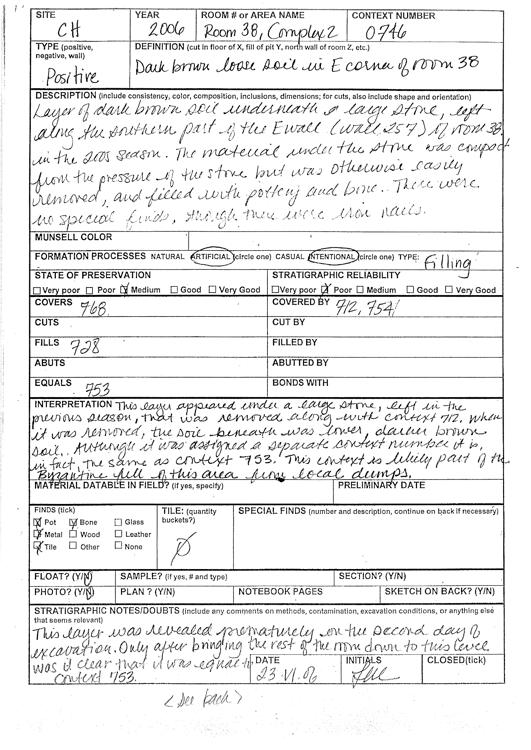 SITE YEAR ROOM # or AREA NAME CONTEXT NUMBER
CH 2006 Room 38, Complex 2 0746
TYPE (positive, negative, wall) DEFINITION (cut in floor of X, fill of pit Y, north wall of room Z, etc.)
Positive Dark brown loose soil in E corner of room 38
DESCRIPTION (include consistency, color, composition, inclusions, dimensions; for cuts, also include shape and orientation)
Layer of dark brown soil underneath a large stone, left
along the southern part of the E wall (wall 257) of room 38
in the 2005 season. The material under the stone was compact
from the pressure of the stone but was otherwise easily
removed, and filled with pottery and bone. There were
no special finds, though there were iron nails.
MUNSELL COLOR
FORMATION PROCESSES NATURAL ARTIFICIAL (circle one) CASUAL INTENTIONAL (circle one) TYPE: Filling
STATE OF PRESERVATION STRATIGRAPHIC RELIABILITY
Very poor Poor Medium Good Very Good Very poor Poor Medium Good Very Good
COVERS 768 COVERED BY 712, 754
CUTS CUT BY
FILLS 728 FILLED BY
ABUTS ABUTTED BY
EQUALS 753 BONDS WITH
INTERPRETATION This layer appeared under a large stone, left in the
previous season, that was removed along with context 712. When
it was removed, the soil beneath was lower, darker brown
soil. Although it was assigned a separate context number it is,
in fact, the same as context 753. This context is likely part of the
Byzantine fill of this area from local dumps.
MATERIAL DATABLE IN FIELD? (if yes, specify) PRELIMINARY DATE
FINDS (tick) TILE: (quantity buckets?) SPECIAL FINDS (number and description, continue on back if necessary)
Pot Bone Glass
Metal Wood Leather
Tile Other None
FLOAT? (Y/N) SAMPLE? (if yes, # and type) SECTION? (Y/N)
PHOTO? (Y/N) PLAN ? (Y/N) NOTEBOOK PAGES SKETCH ON BACK? (Y/N)
STRATIGRAPHIC NOTES/DOUBTS (include any comments on methods, contamination, excavation conditions, or anything else
that seems relevant)
This layer was revealed prematurely on the second day of
excavation. Only after bringing the rest of the room down to this level
was it clear that it was equal to
context 753.
DATE INITIALS CLOSED(tick)
23.VI.06
<See back>